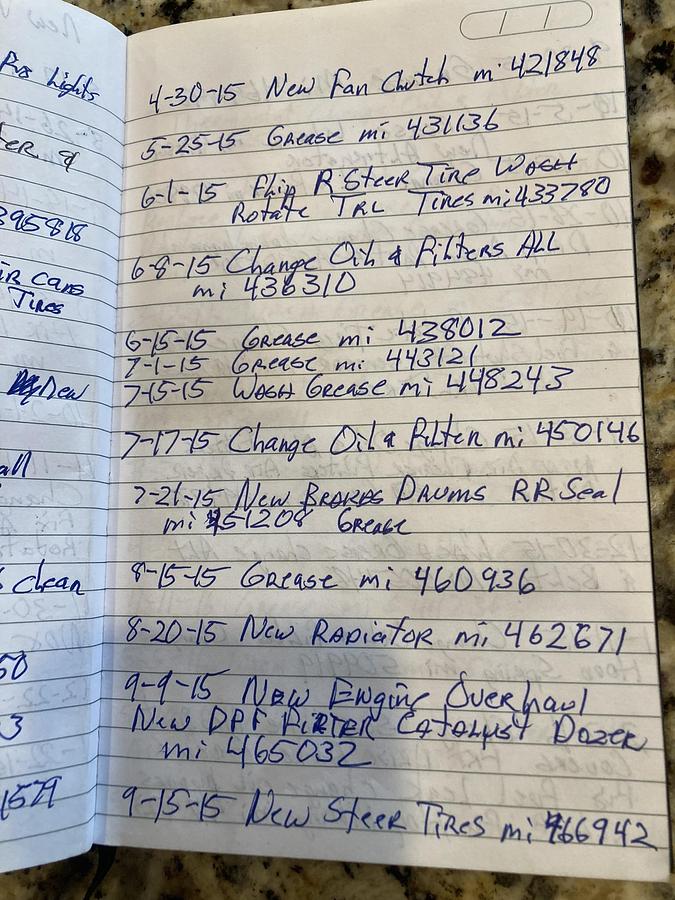 Lights
395818
Tires
New
all
clean
50
3
1579
4-30-15 New Fan Clutch mi 421848
5-25-15 Grease mi 431136
6-1-15 Flip R Steer Tire Wash
Rotate TRL Tires mi 433780
6-8-15 Change Oil & Filters ALL
mi 436310
6-15-15 Grease mi 438012
7-1-15 Grease mi 443121
7-15-15 Wash Grease mi 448243
7-17-15 Change Oil & Filter mi 450146
7-21-15 New Brakes Drums RR Seal
mi 451208 Grease
8-15-15 Grease mi 460936
8-20-15 New Radiator mi 462671
9-9-15 New Engine Overhaul
New DPF Filter Catalyst Dozer
mi 465032
9-15-15 New Steer Tires mi 466942